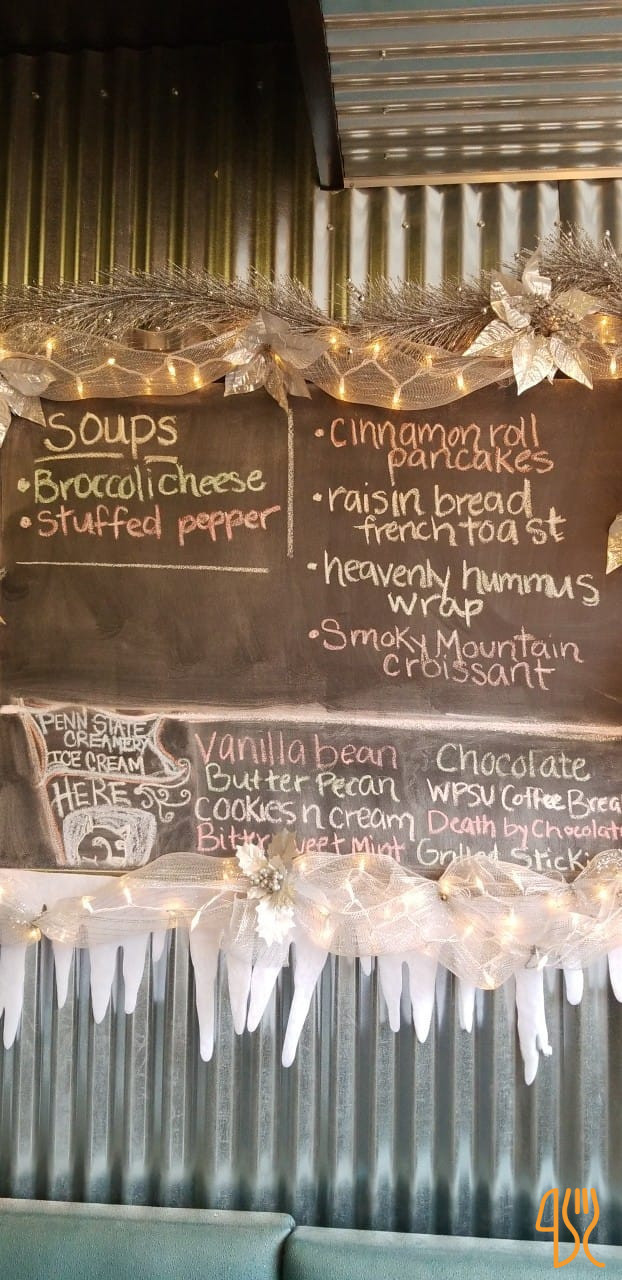 Soups
• Broccoli cheese
• stuffed pepper
• cinnamon roll
pancakes
• raisin bread
french toast
• heavenly hummus
wrap
• Smoky Mountain
croissant
PENN STATE
CREAMERY
ICE CREAM
HERE
Vanilla bean
Butter Pecan
cookies n cream
Mint
Chocolate
WPSU Coffee Brea
Death by Chocolat
Grilled Sticki